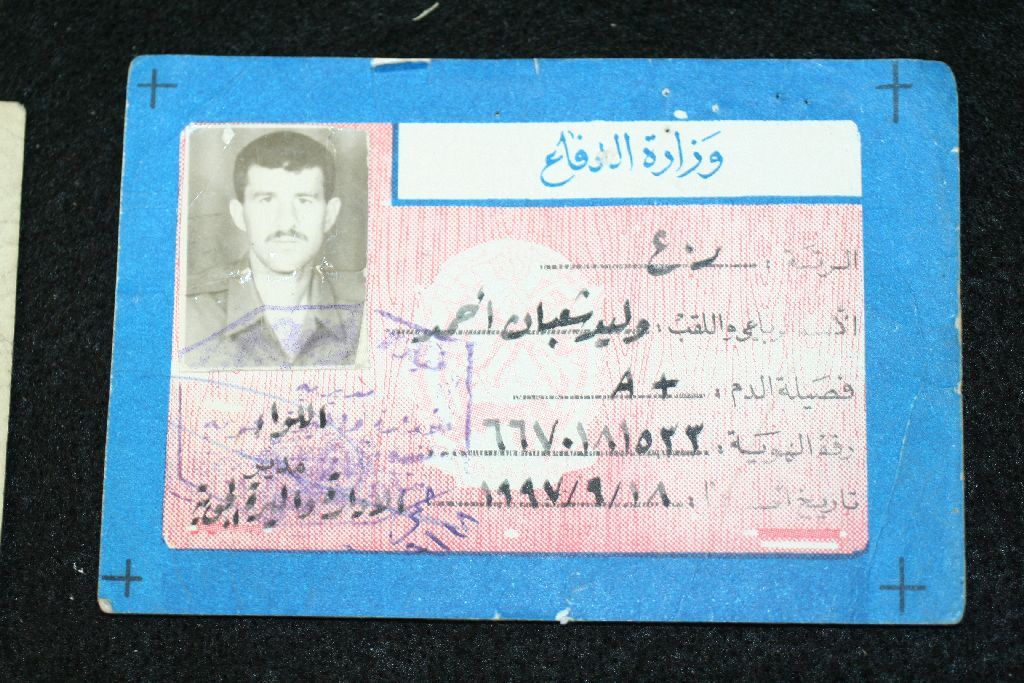 وزارة الدفاع
الرتبة : ر.ع
الاسم الرباعي واللقب : وليد شعبان احمد
فصيلة الدم : A +
رقم الهوية : ٦٦٧٠١٨١٥٢٣
تاريخ ١٩٩٧/٩/١٨
مديرية
اللواء
مدير
الادارة والميرة الجوية